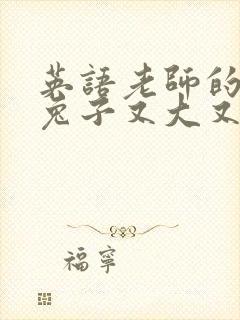 英語老師的
兔子又大又
福寧